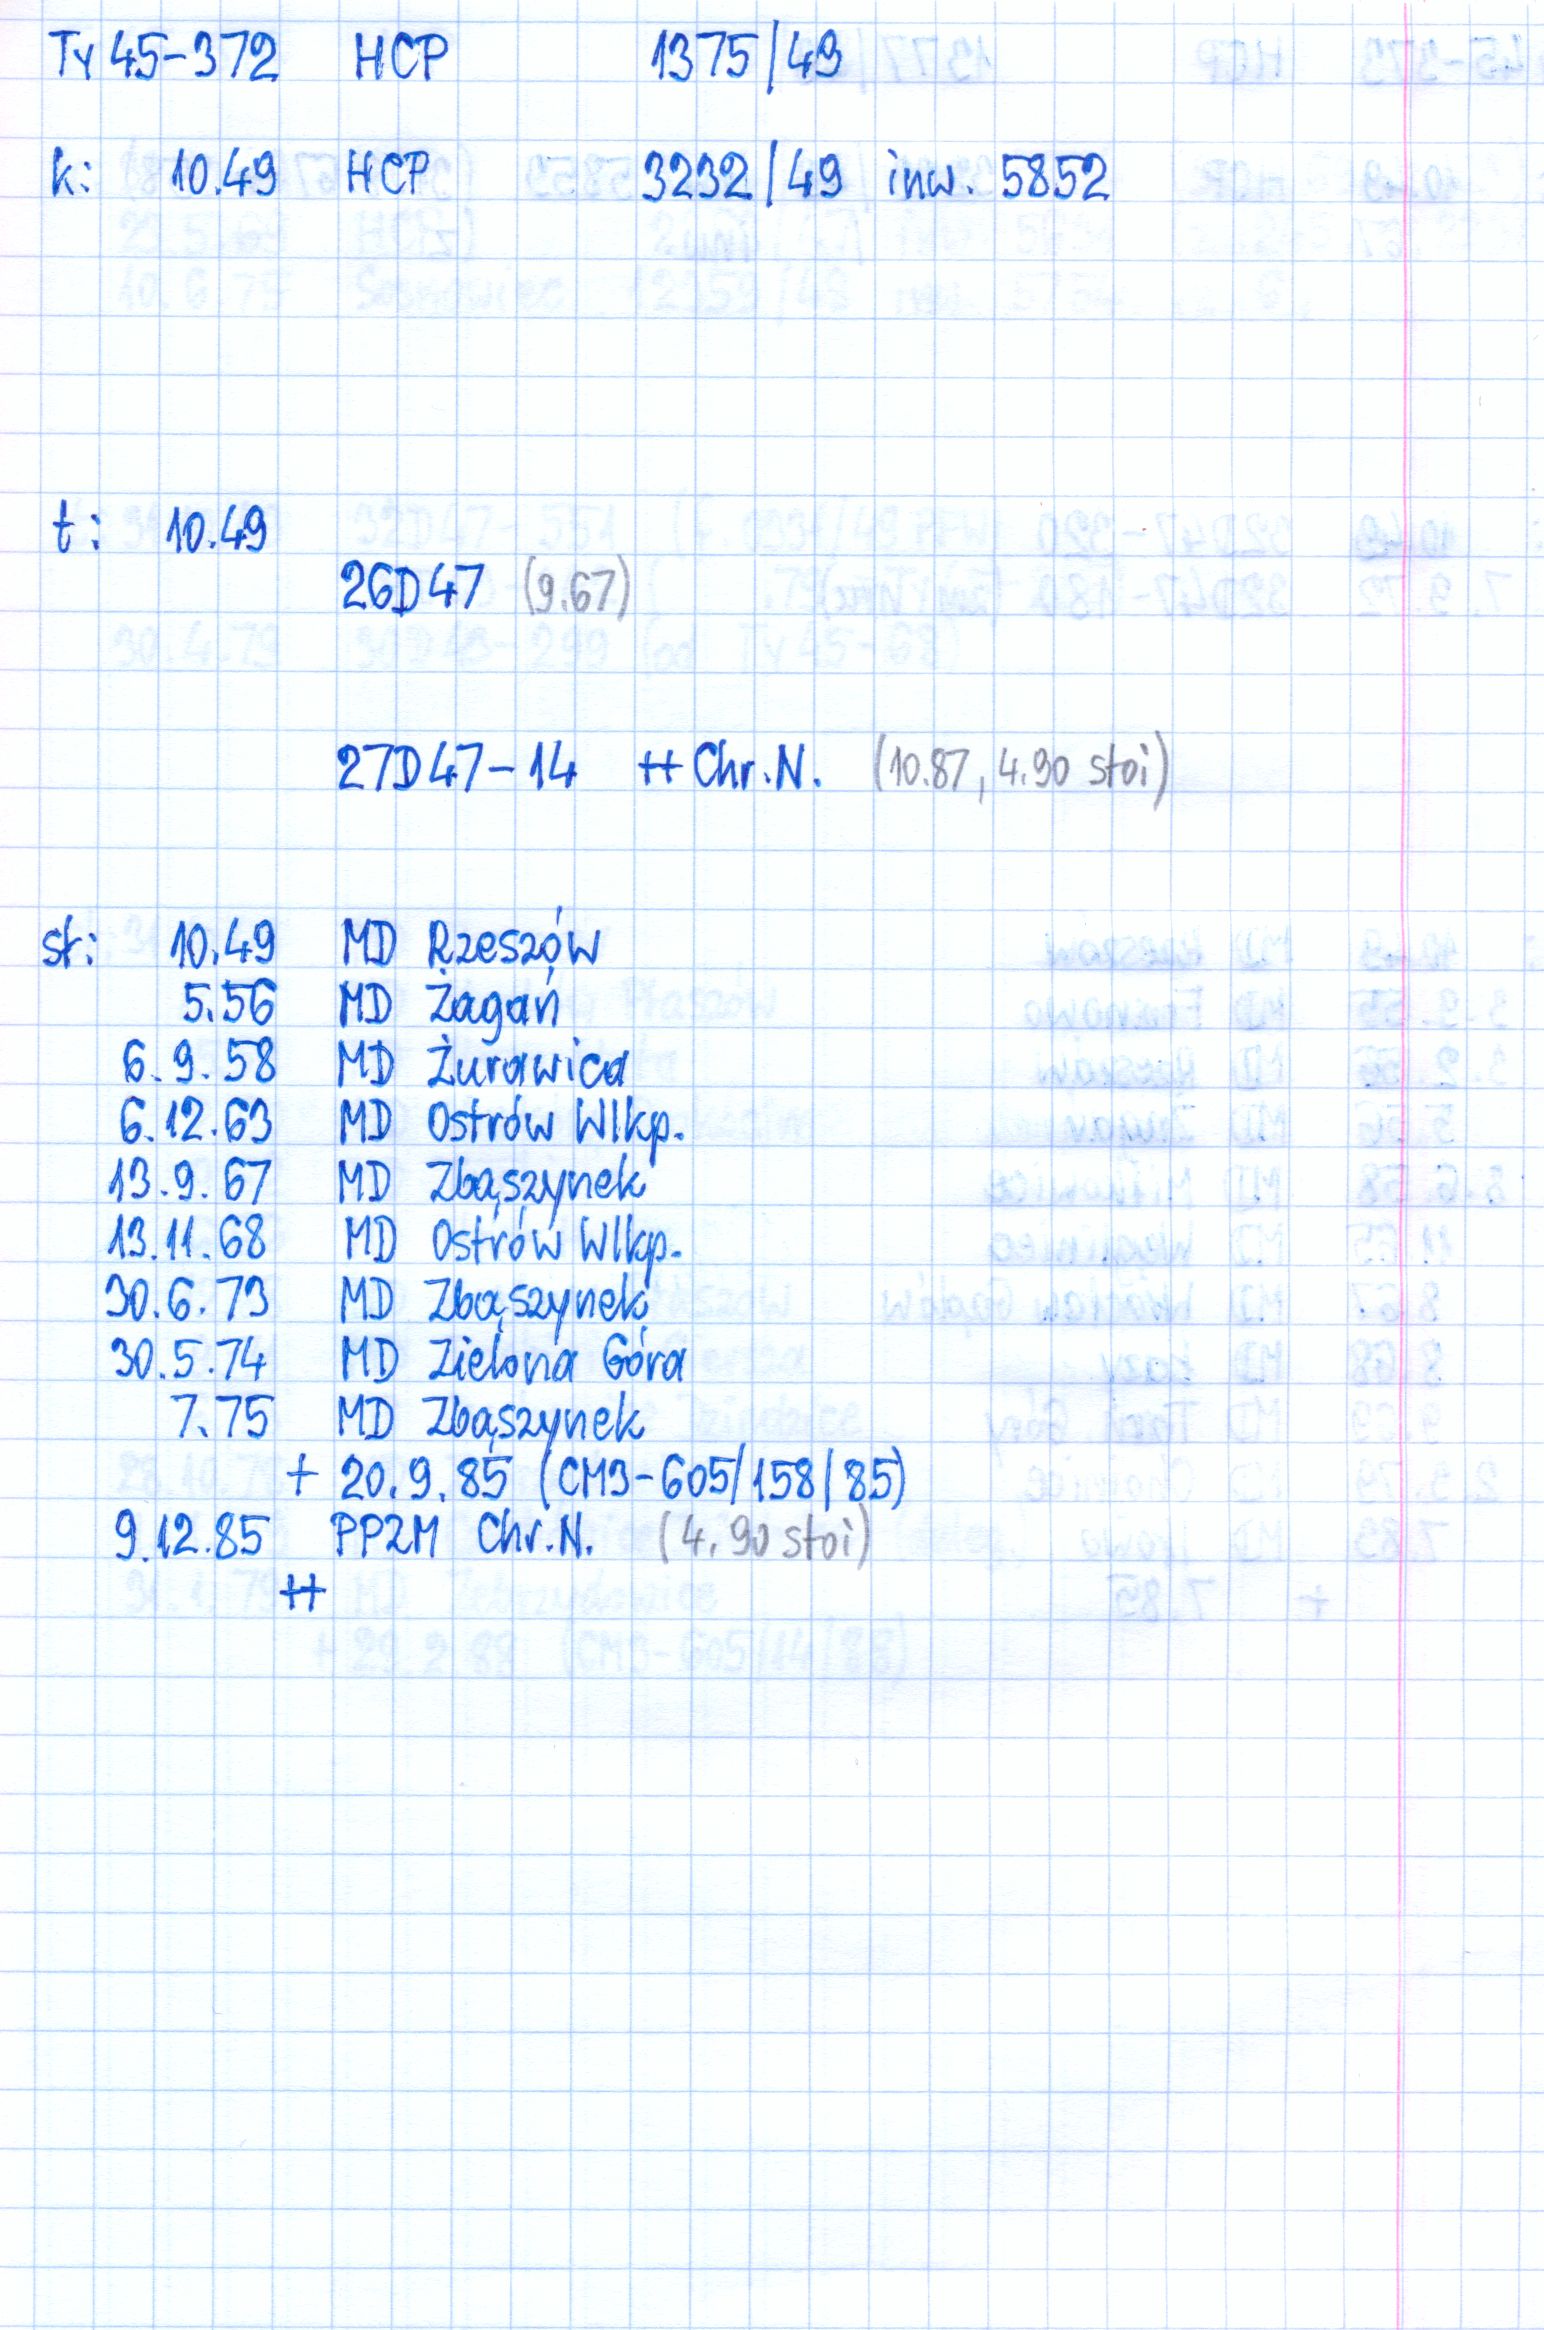 Ty 45-372 HCP 1375/49
k: 10.49 HCP 3232/49 inw. 5852
t: 10.49
26D47 (9.67)
27D47-14 ++ Chr.N. (10.87, 4.90 stoi)
st: 10.49 MD Rzeszów
5.56 MD Żagań
6.9.58 MD Żurawica
6.12.63 MD Ostrów Wlkp.
13.9.67 MD Zbąszynek
13.11.68 MD Ostrów Wlkp.
30.6.73 MD Zbąszynek
30.5.74 MD Zielona Góra
7.75 MD Zbąszynek
+ 20.9.85 (CM3-605/158/85)
9.12.85 PPZM Chr.N. (4.90 stoi)
++